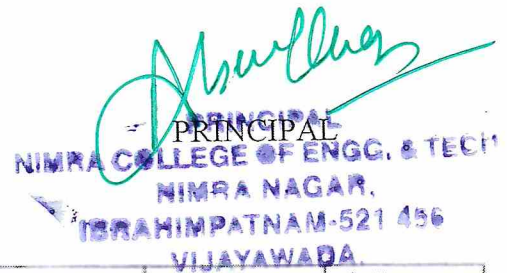 PRINCIPAL
PRINCIPAL
NIMRA COLLEGE OF ENGG. & TECH
NIMRA NAGAR,
IBRAHIMPATNAM-521 456
VIJAYAWADA.